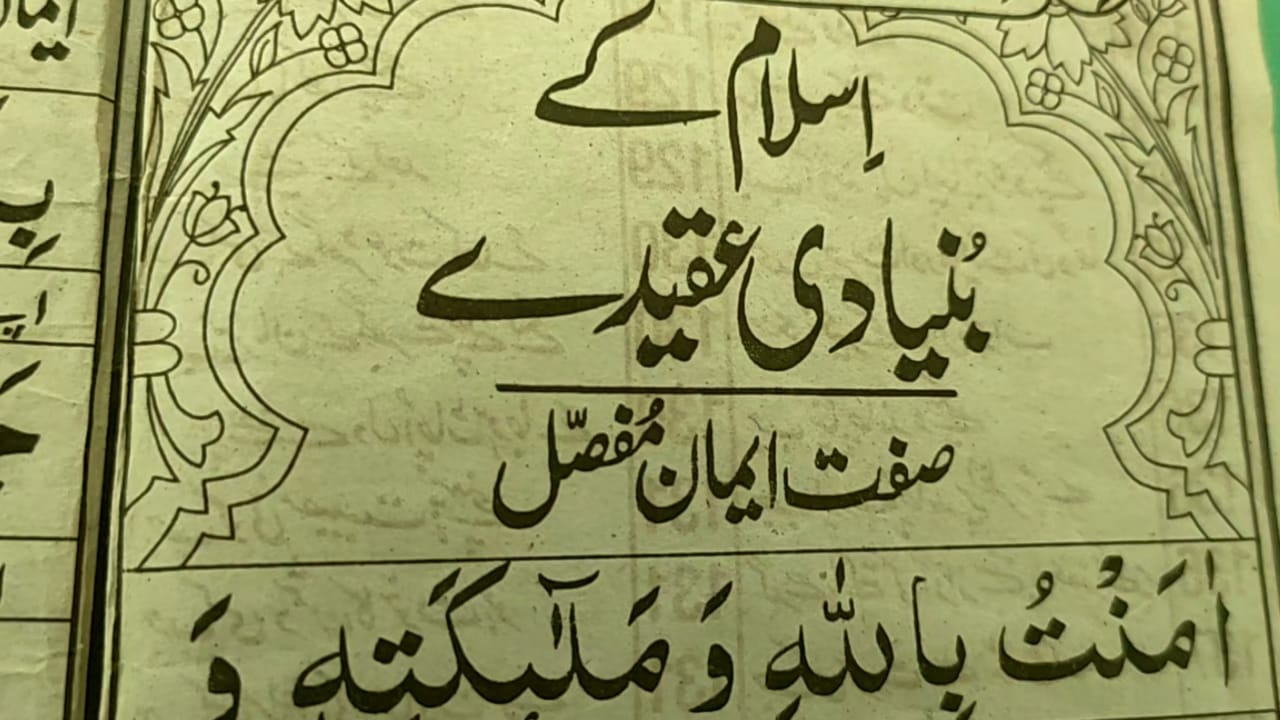 اِسلام کے
بُنیادی عقیدے
صفت ایمان مُفصّل
اٰمَنْتُ بِاللّٰهِ وَمَلٰٓئِكَتِهٖ وَ